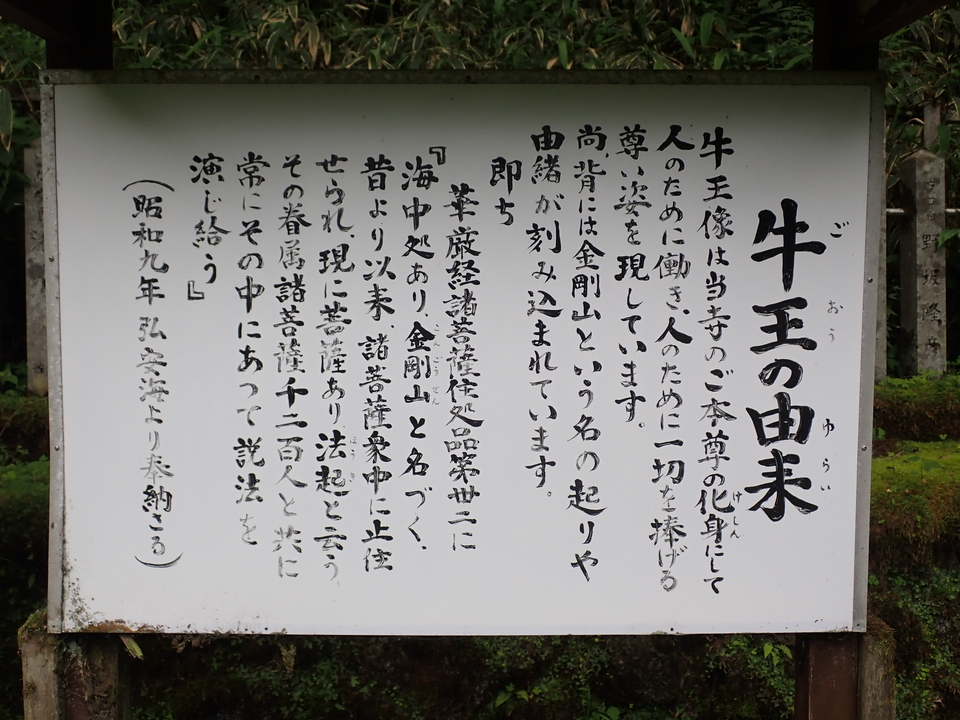 牛王の由来
牛王像は当寺のご本尊の化身にして
人のために働き、人のために一切を捧げる
尊い姿を現しています。
尚、背には金剛山という名の起りや
由緒が刻み込まれています。
即ち
華厳経諸菩薩住処品第卅二に
『海中処あり、金剛山と名づく、
昔より以来、諸菩薩衆中に止住
せられ、現に菩薩あり、法起と云う
その眷属諸菩薩千二百人と共に
常にその中にあつて説法を
演じ給う』
(昭和九年 弘安海より奉納さる)